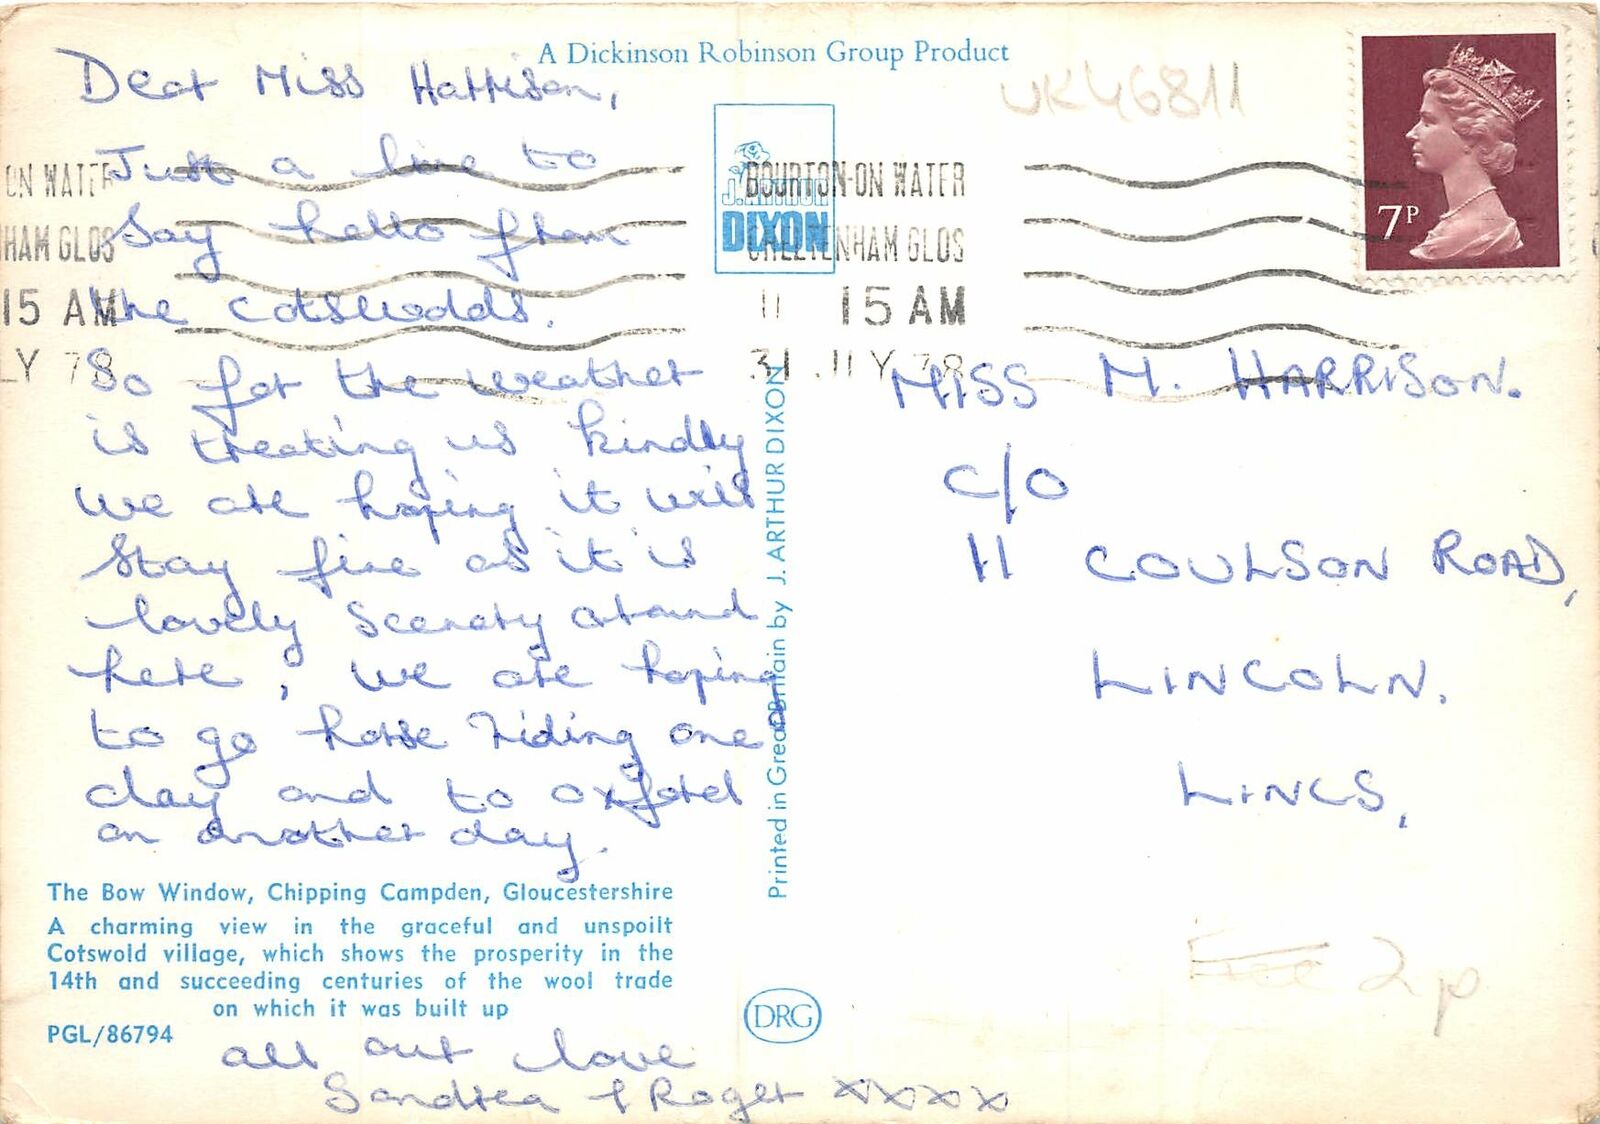 A Dickinson Robinson Group Product
UK46811
Dear Miss Harrison,
Just a line to
say hello from
the cotswolds.
So far the weather
is treating us kindly
we are hoping it will
stay fine as it is
lovely scenery around
here, we are hoping
to go horse riding one
day and to oxford
on another day.
all our love
Sandrea & Roger xxxx
The Bow Window, Chipping Campden, Gloucestershire
A charming view in the graceful and unspoilt
Cotswold village, which shows the prosperity in the
14th and succeeding centuries of the wool trade
on which it was built up
PGL/86794
ON WATER
HAM GLOS
15 AM
LY 78
J. ARTHUR
DIXON
BOURTON-ON WATER
CHELTENHAM GLOS
11 15 AM
31 JLY 78
7P
Printed in Great Britain by J. ARTHUR DIXON
DRG
MISS M. HARRISON.
C/O
11 COULSON ROAD,
LINCOLN.
LINCS,
2p